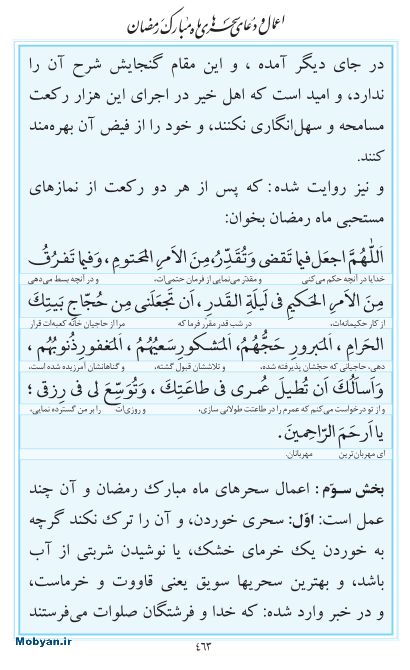 اعمال و دعای سحرهای ماه مبارک رمضان
در جای دیگر آمده ، و این مقام گنجایش شرح آن را
ندارد، و امید است که اهل خیر در اجرای این هزار رکعت
مسامحه و سهل‌انگاری نکنند، و خود را از فیض آن بهره‌مند
کنند.
و نیز روایت شده: که پس از هر دو رکعت از نمازهای
مستحبی ماه رمضان بخوان:
اَللّٰهُمَّ اجعَل فیما تَقضی وَتُقَدِّرُ، مِنَ الاَمرِ المَحتومِ، وَفیما تَفرُقُ
خدایا در آنچه حکم می‌کنی و مقدّر می‌نمایی از فرمان حتمی‌ات، و در آنچه بسط می‌دهی
مِنَ الاَمرِ الحَکیمِ فی لَیلَةِ القَدرِ، اَن تَجعَلَنی مِن حُجّاجِ بَیتِكَ
از کار حکیمانه‌ات، در شب قدر مقرّر فرما که مرا از حاجیان خانه کعبه‌ات قرار
الحَرامِ، اَلمَبرورِ حَجُّهُم، اَلمَشکورِ سَعیُهُم، اَلمَغفورِ ذُنوبُهُم ،
دهی، حاجیانی که حجّشان پذیرفته شده، و تلاششان قبول گشته، و گناهانشان آمرزیده شده است،
وَ اَسأَلُكَ اَن تُطیلَ عُمری فی طاعَتِكَ ، وَتُوَسِّعَ لی فی رِزقی ؛
و از تو درخواست می‌کنم که عمرم را در طاعتت طولانی سازی، و روزی‌ات را بر من گسترده نمایی،
یا اَرحَمَ الرّاحِمینَ.
ای مهربان‌ترین مهربانان.
بخش سوّم : اعمال سحرهای ماه مبارک رمضان و آن چند
عمل است: اوّل: سحری خوردن، و آن را ترک نکند گرچه
به خوردن یک خرمای خشک، یا نوشیدن شربتی از آب
باشد، و بهترین سحریها سویق یعنی قاووت و خرماست،
و در خبر وارد شده: که خدا و فرشتگان صلوات می‌فرستند
٤٦٣
Mobyan.ir